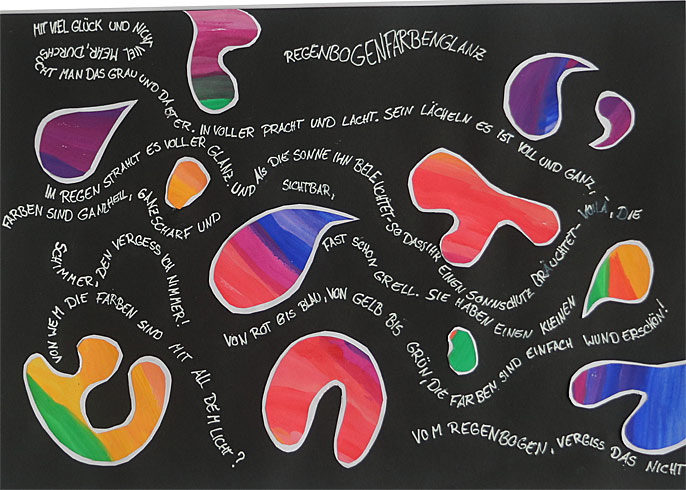 REGENBOGENFARBENGLANZ
MIT VIEL GLÜCK UND NICHT
VIEL MEHR, DURCHS
MAN DAS GRAU UND DA IST ER. IN VOLLER PRACHT UND LACHT. SEIN LÄCHELN ES IST VOLL UND GANZ,
IM REGEN STRAHLT ES VOLLER GLANZ. UND, ALS DIE SONNE IHN BELEUCHTET - SO DASS IHR EINEN SONNSCHUTZ BRÄUCHTET - VOILÀ, DIE
FARBEN SIND GANZ HEIL, GANZ SCHARF UND
SICHTBAR,
FAST SCHON GRELL. SIE HABEN EINEN KLEINEN
SCHIMMER, DEN VERGESS ICH NIMMER!
VON WEM DIE FARBEN SIND MIT ALL DEM LICHT?
VON ROT BIS BLAU, VON GELB BIS GRÜN, DIE FARBEN SIND EINFACH WUNDERSCHÖN!
VOM REGENBOGEN, VERGISS DAS NICHT